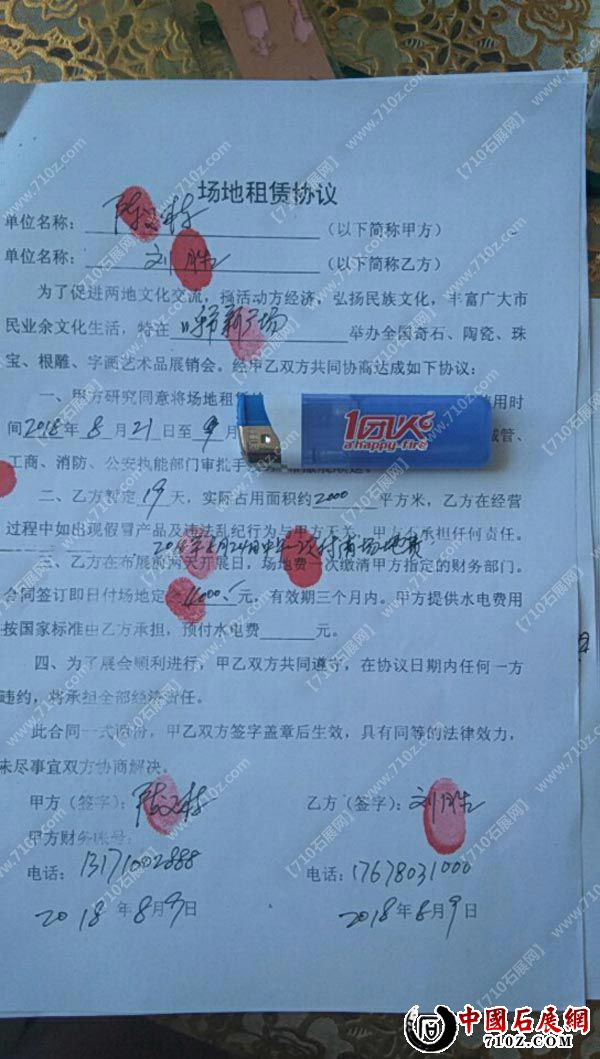 场地租赁协议
单位名称： （以下简称甲方）
单位名称：刘胜（以下简称乙方）
为了促进两地文化交流，搞活动方经济，弘扬民族文化，丰富广大市
民业余文化生活，特在 新广场 举办全国奇石、陶瓷、珠
宝、根雕、字画艺术品展销会。经甲乙双方共同协商达成如下协议：
一、甲方研究同意将场地租赁 用时
间2018年8月21日至9月 城管、
工商、消防、公安执能部门审批手
二、乙方暂定19天，实际占用面积约2000平方米，乙方在经营
过程中如出现假冒产品及违法乱纪行为与甲方无关，甲方不承担任何责任。
2018年8月24日中午一次付清场地费
三、乙方在布展前两天开展日，场地费一次缴清甲方指定的财务部门。
合同签订即日付场地定 元，有效期三个月内。甲方提供水电费用
按国家标准由乙方承担，预付水电费 元。
四、为了展会顺利进行，甲乙双方共同遵守，在协议日期内任何一方
违约，将承担全部经济责任。
此合同一式两份，甲乙双方签字盖章后生效，具有同等的法律效力，
未尽事宜双方协商解决。
甲方（签字）： 乙方（签字）：刘胜
甲方财务账号：
电话：13171002888 电话：17678031000
2018年8月9日 2018年8月9日
a happy-fire
【710石展网】 www.710z.com
中國石展網
710Z.COM